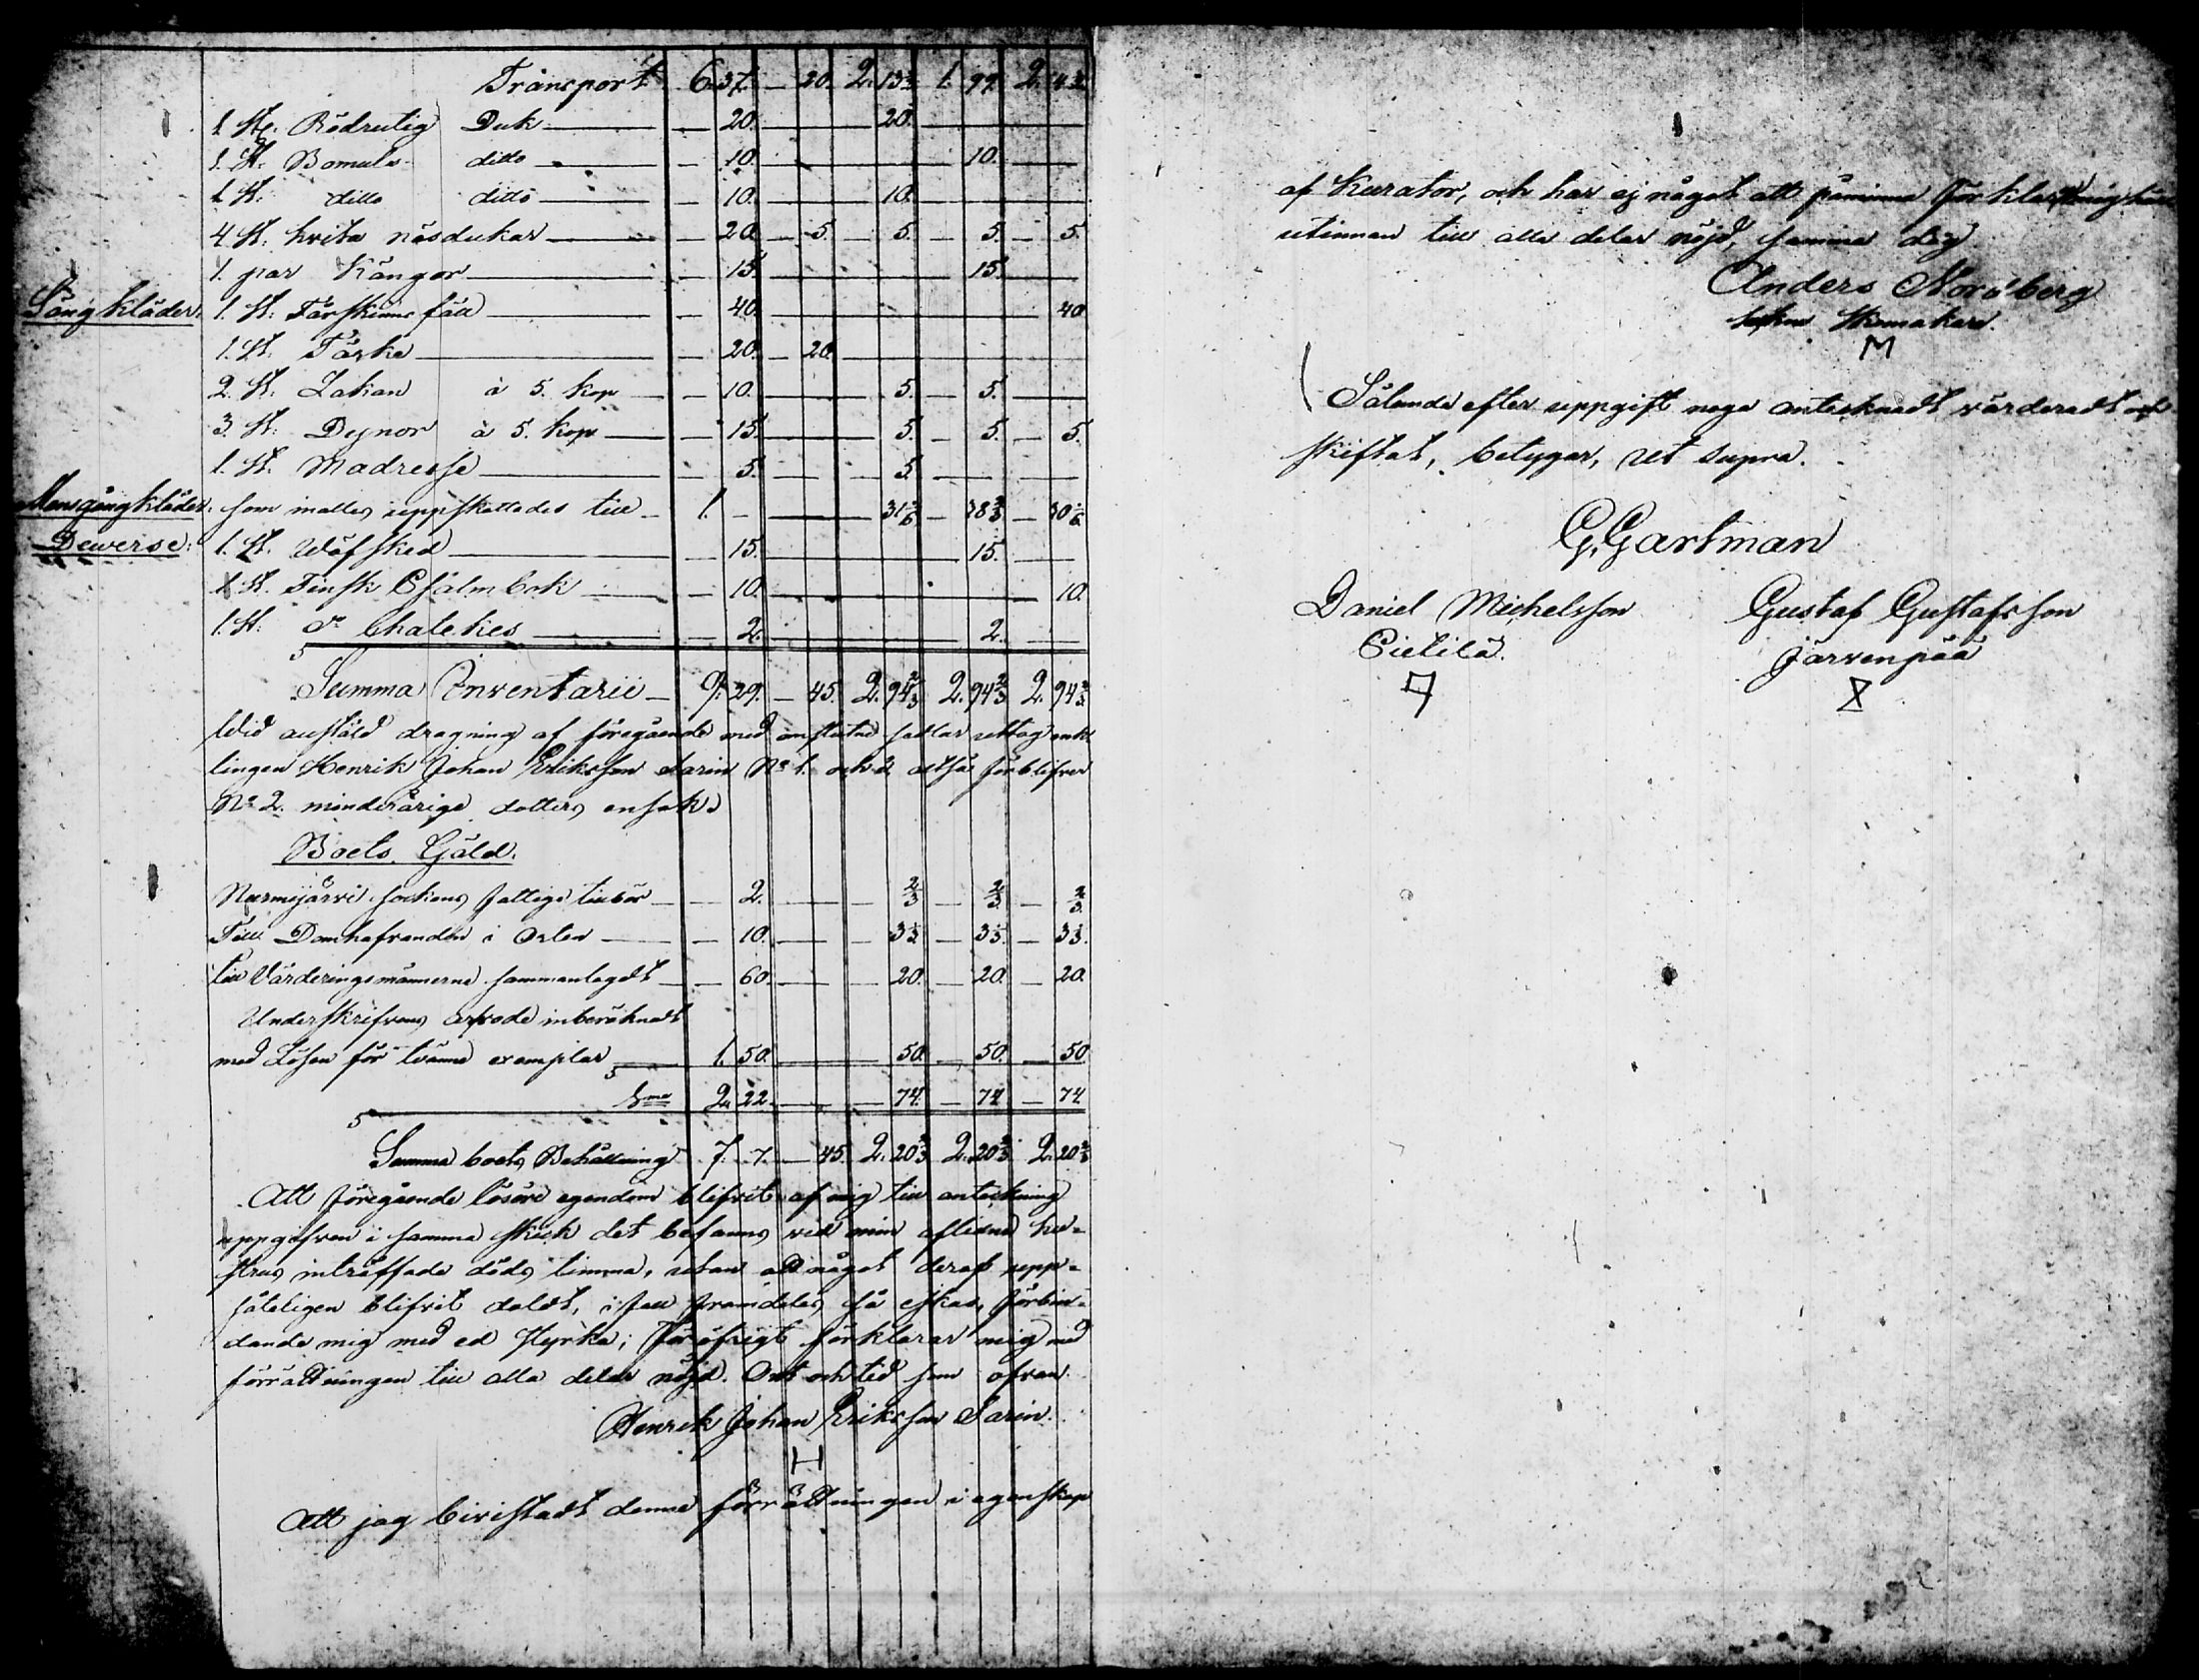 Transport 6. 37. — 20. 2. 13⅔ 1. 99. 2. 4⅔
1. St. Rödrutig Duk — 20. — 20.
1. St. Bomuls ditto — 10. — 10.
1. St. ditto ditto — 10. — 10.
4 St. hvita näsdukar — 20. — 5. — 5. — 5. — 5.
1. par Kängor — 15. — 15.
Sängkläder: 1. St: Fårskinns fäll — 40. — 40
1. St. Täcke — 20. — 20.
2. St. Lakan à 5. kop — 10. — 5. — 5.
3. St. Dynor à 5. kop — 15. — 5. — 5. — 5.
1. St. Madresse — 5. — 5.
Mansgångkläder: som inalles uppskattades till — 1. —
Dewerse: 1. St. Wäfsked — 15. — 15.
1. St. Finsk Psalmbok — 10. — 10.
1. St. do — 2. — 2.
Summa Inventarii — 9. 29. — 45. 2. 94⅔ 2. 94⅔ 2. 94⅔
Wid anstäld dragning af föregående med lottar uttog enk-
lingen Henrik Johan Eriksson Sarin No 1. och altså förblifver
No 2. minderåriga dotters ensak.
Boets Gäld.
Nurmijärvi sockens fattige tillkör — 2. — ⅔ — ⅔ — ⅔
Till Domhafvanden i Orten — 10. — 3⅓ — 3⅓ — 3⅓.
till Värderingsmännerne sammanlagdt — 60. — 20. — 20. — 20.
Underskrifvens arfvode inberäknadt
med Lösen för tvänne exemplar — 1. 50. — 50. — 50. — 50
Sma 2. 22. — 74. — 74 — 74
Summa boets Behållning 7. 7. — 45. 2. 20⅔ 2. 20⅔ 2. 20⅔
Att föregående lösöre egendom blifvit af mig till anteckning
uppgifven i samma skick det befanns vid min aflidna hu-
strus inträffade döds timma, utan att något deraf upp-
såteligen blifvit doldt, i fall framdeles så äskas, förbin-
dande mig med ed styrka; för öfrigt förklarar mig med
förrättningen till alla delar nöjd. Ort och tid som ofvan.
Henrik Johan Eriksson Sarin.
H
Att jag bivistadt denna förrättningen i egenskap
af Kurator, och har ej något att påminna förklarar mig här
utinnan till alla delar nöjd, samma dag
Anders Nordberg
Skomakare.
M
Sålunda efter uppgift noga antecknadt värderadt och
skiftat, betygar, ut supra.
G. Gartman
Daniel Michelsson Gustaf Gustafsson
Pietilä. Järvenpää